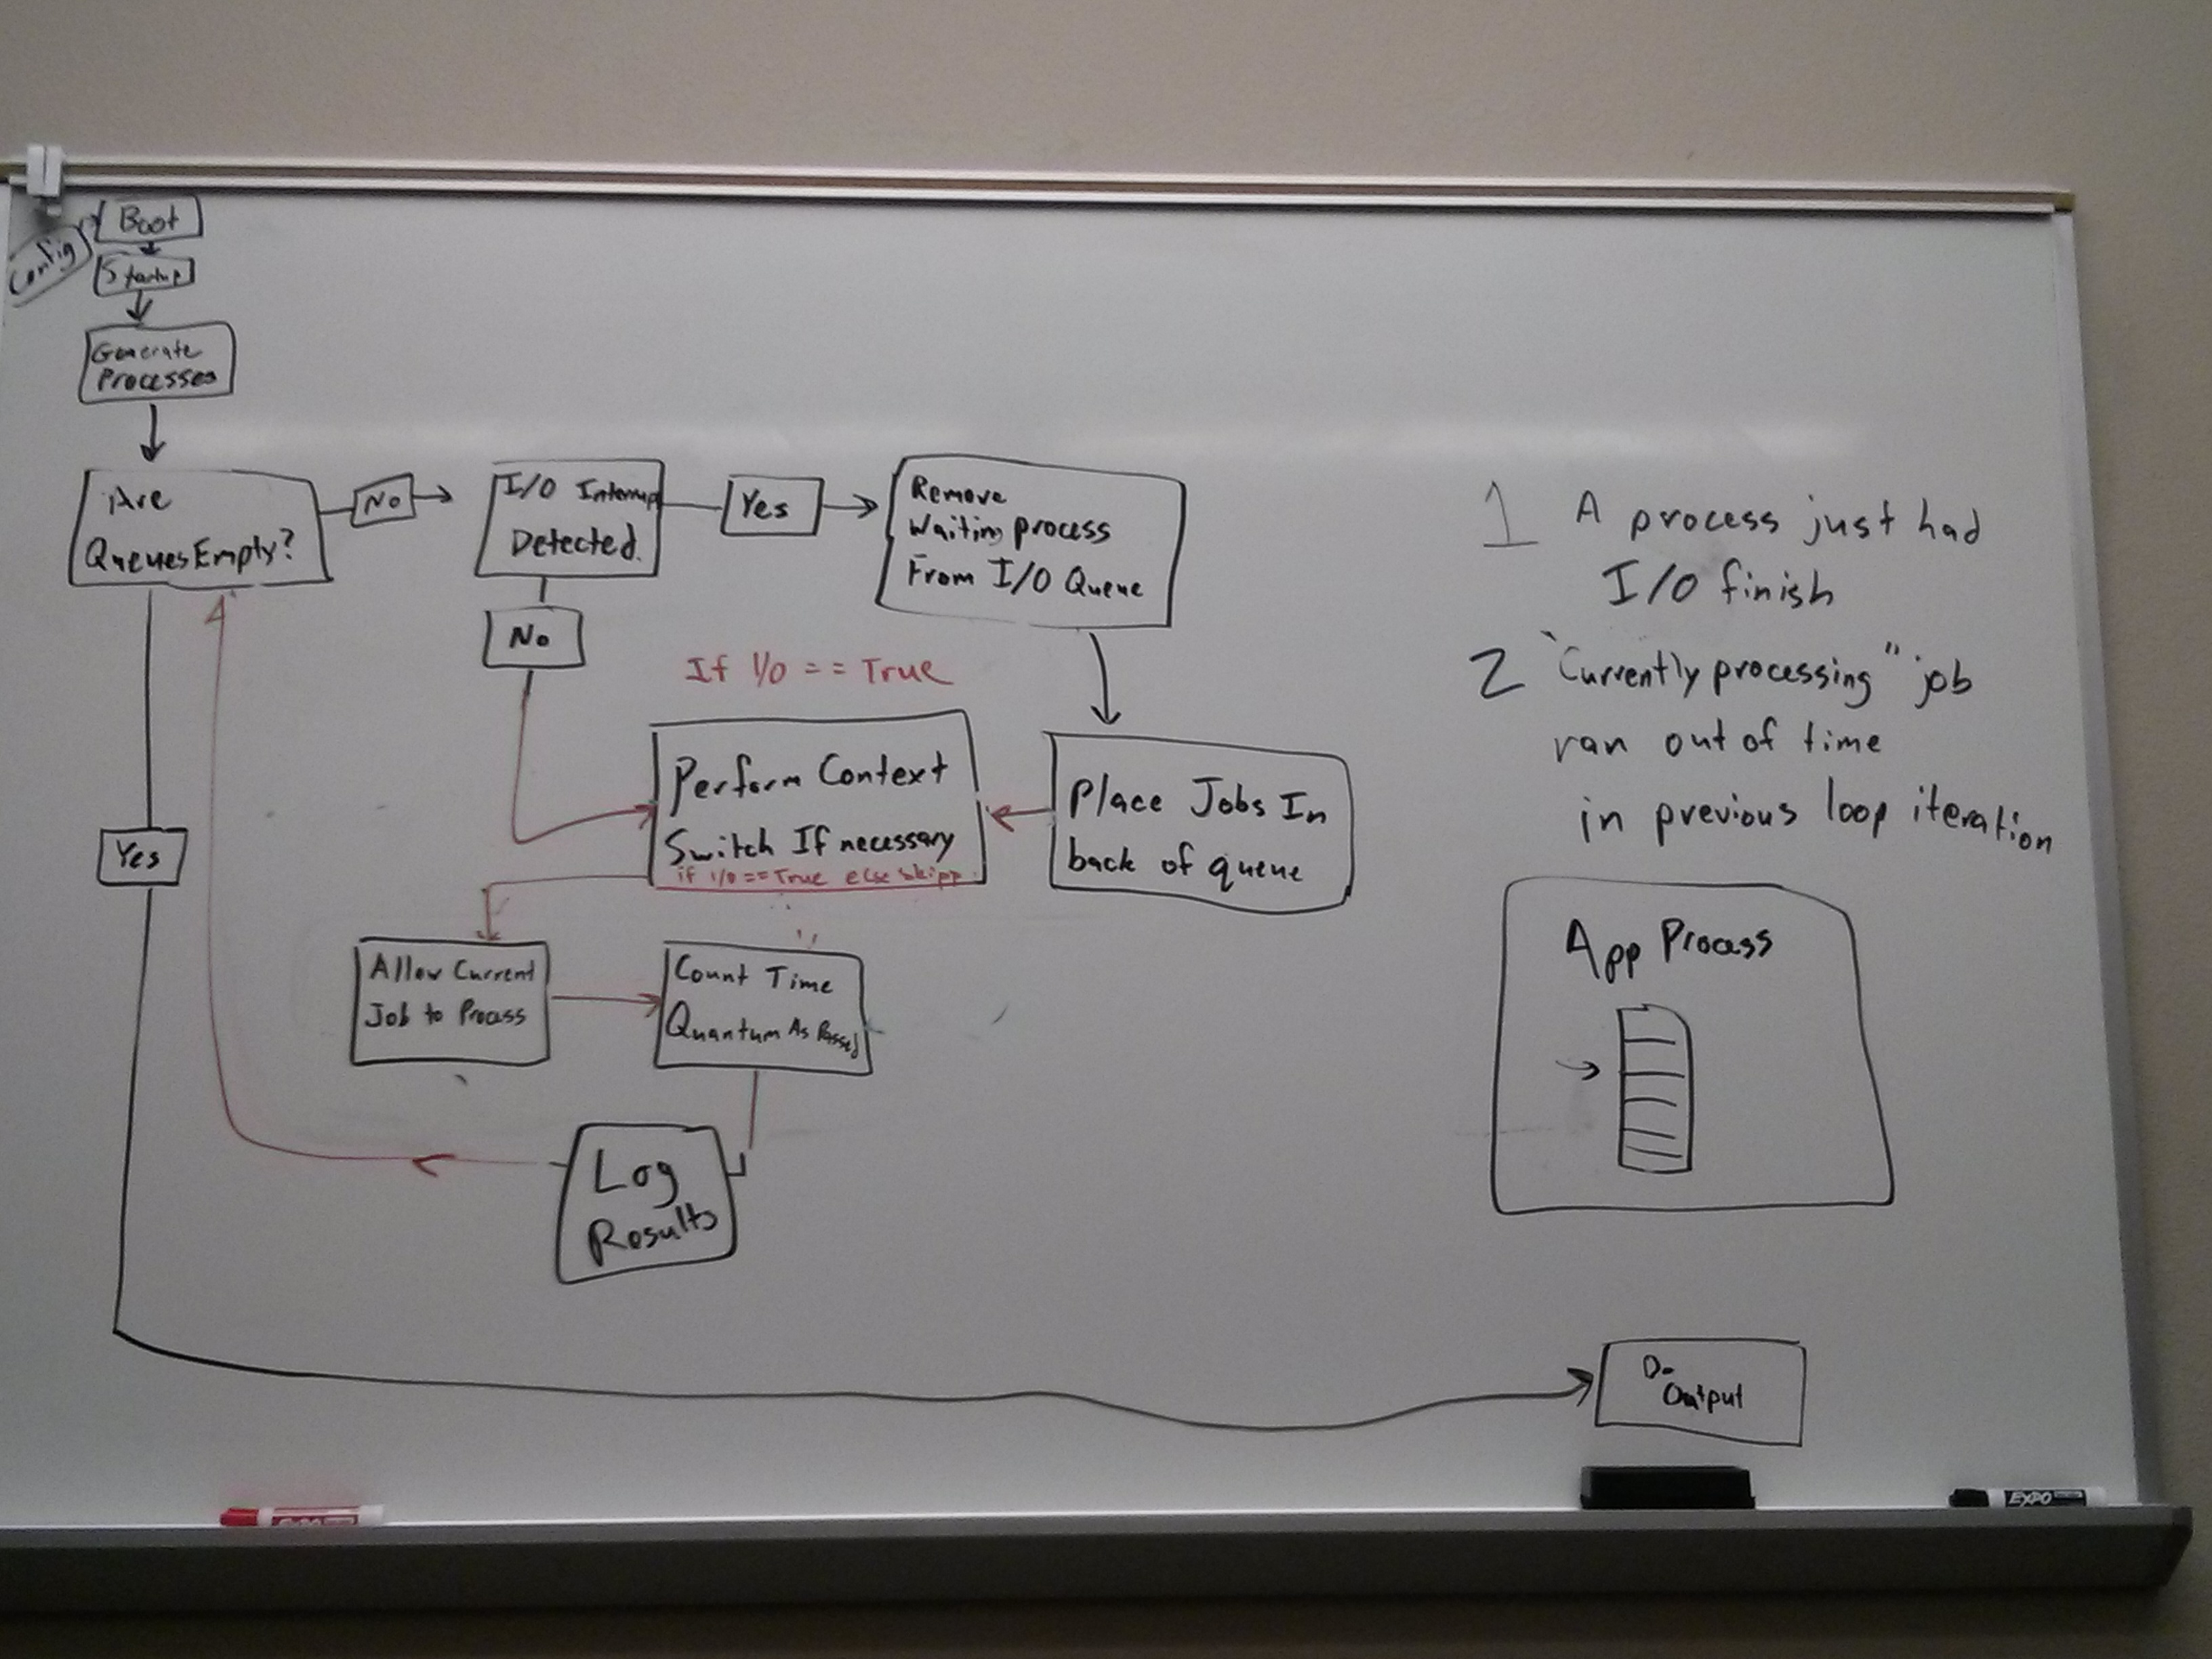 Boot
Config
Startup
Generate
Processes
Are
Queues Empty?
No
I/O Interrup
Detected.
Yes
Remove
Waiting process
From I/O Queue
No
If I/O == True
Perform Context
Switch If necessary
if I/O == True else skipp
Place Jobs In
back of queue
Yes
Allow Current
Job to Process
Count Time
Quantum As Passed
Log
Results
1 A process just had
I/O finish
2 "Currently processing" job
ran out of time
in previous loop iteration
App Process
Do
Output
EXPO